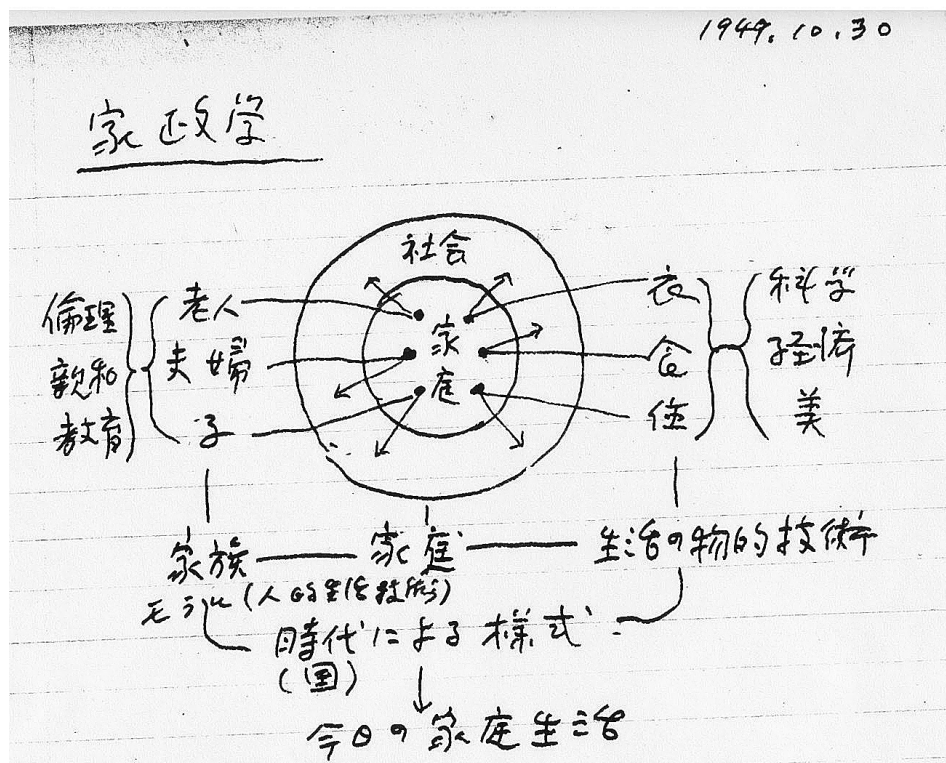 1949.10.30
家政学
社会
倫理
親和
教育
老人
夫婦
子
家
庭
衣
食
住
科学
経済
美
家族
家庭
生活の物的技術
モラル(人的生活技術)
時代による様式
(国)
今日の家庭生活